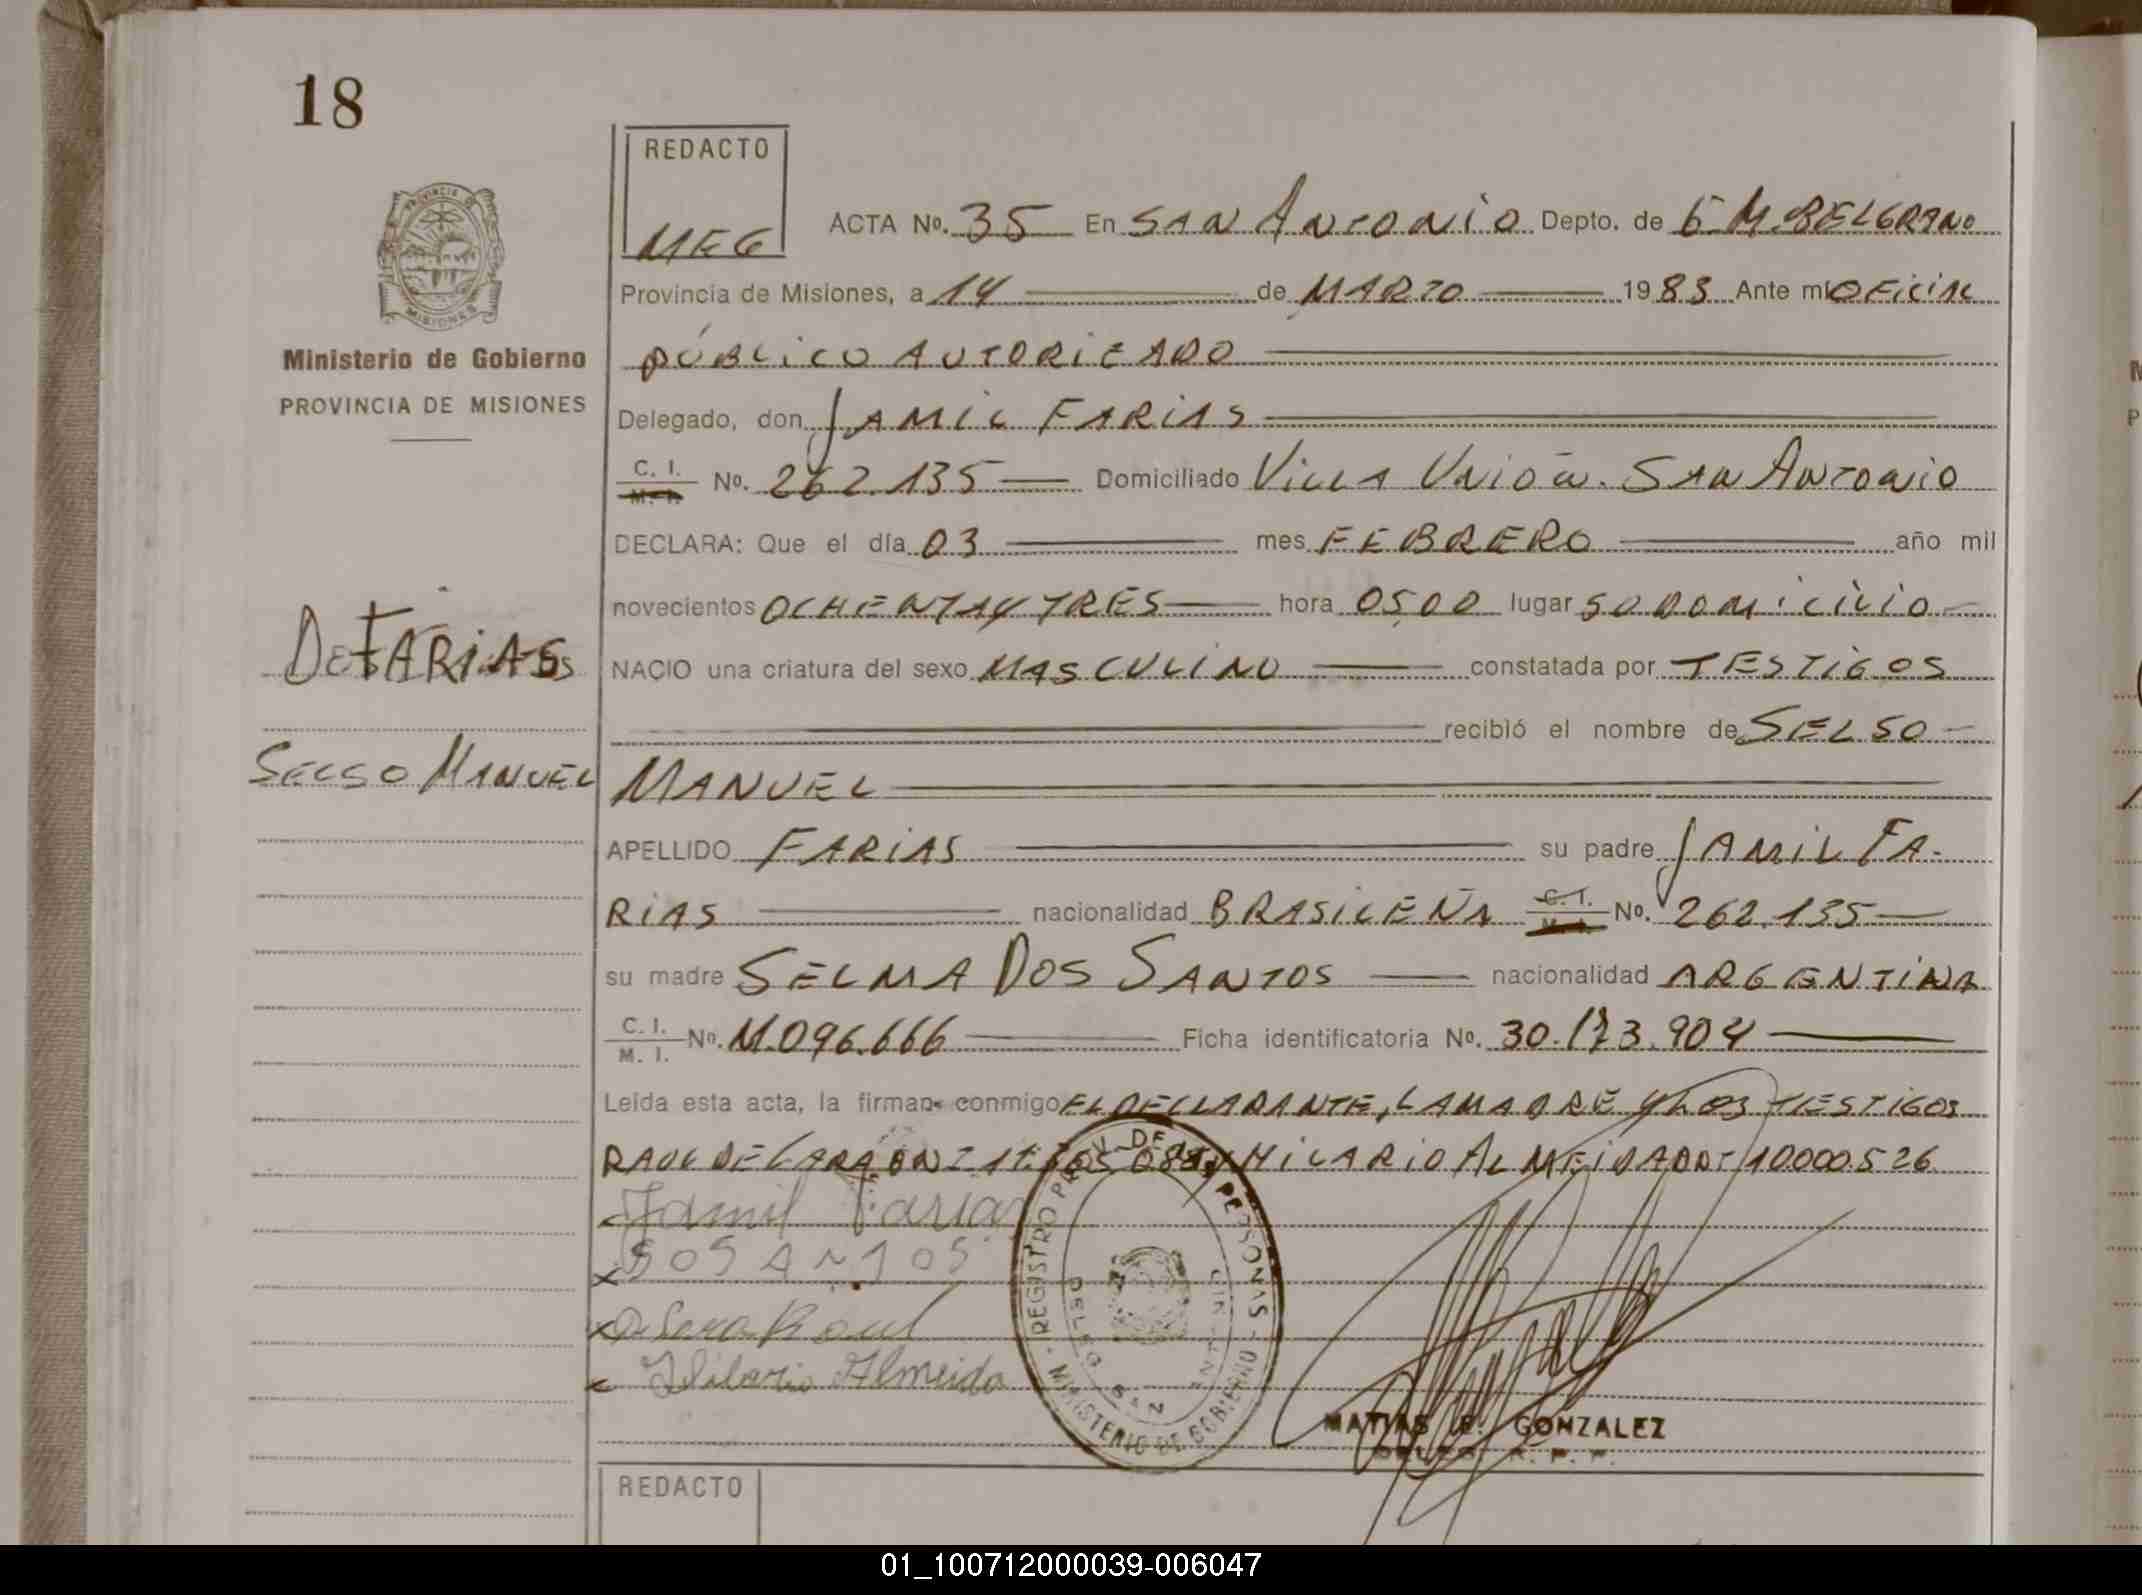 18
REDACTO
MEG
PROVINCIA
MISIONES
Ministerio de Gobierno
PROVINCIA DE MISIONES
ACTA No. 35 En SAN ANTONIO Depto. de G. M. BELGRANO
Provincia de Misiones, a 14 de MARZO 1983 Ante mí OFICIAL
PÚBLICO AUTORIZADO
Delegado, don JAMIL FARIAS
C. I. M. I. No. 262.135 Domiciliado VILLA UNIÓN. SAN ANTONIO
DECLARA: Que el día 03 mes FEBRERO año mil
novecientos OCHENTA Y TRES hora 05,00 lugar SU DOMICILIO
DE FARIAS
NACIO una criatura del sexo MASCULINO constatada por TESTIGOS
recibió el nombre de SELSO
SELSO MANUEL
MANUEL
APELLIDO FARIAS su padre JAMIL FA-
RIAS nacionalidad BRASILEÑA C. I. M. I. No. 262.135
su madre SELMA DOS SANTOS nacionalidad ARGENTINA
C. I. M. I. No. M.096.666 Ficha identificatoria No. 30.173.904
Leída esta acta, la firman conmigo EL DECLARANTE, LA MADRE Y LOS TESTIGOS
RAUL DE LARA DNI Y HILARIO ALMEIDA DNI 10000.526
Jamil Farias
x DOSANTOS
x Raul
x Hilario Almeida
REGISTRO PROV. DE LAS PERSONAS - MINISTERIO DE GOBIERNO -
DELEG. SAN ANTONIO
MATIAS E. GONZALEZ
DELEG. R. P. P.
REDACTO
01_100712000039-006047